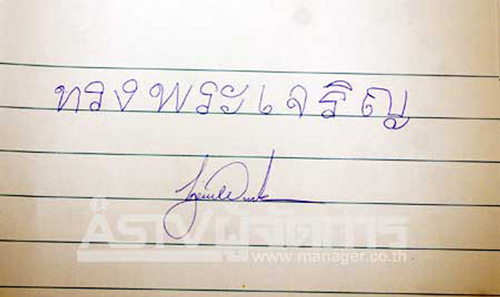 ทรงพระเจริญ
ASTVผู้จัดการ
www.manager.co.th